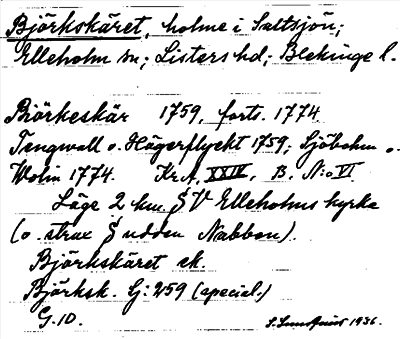 Björkskäret, holme i Saltsjön;
Elleholm sn; Listers hd; Blekinge l.
Biörkeskär 1759, forts. 1774
Tengwall o. Hägerflyckt 1759; Sjöbohm o.
Wolin 1774. Kr.A. XXIV, B. N:o VI
Läge 2 km. S V Elleholms kyrka
(o. strax S udden Nabben).
Björkskäret ek.
Björksk. Gj: 259 (special.)
G. 10. 1936.